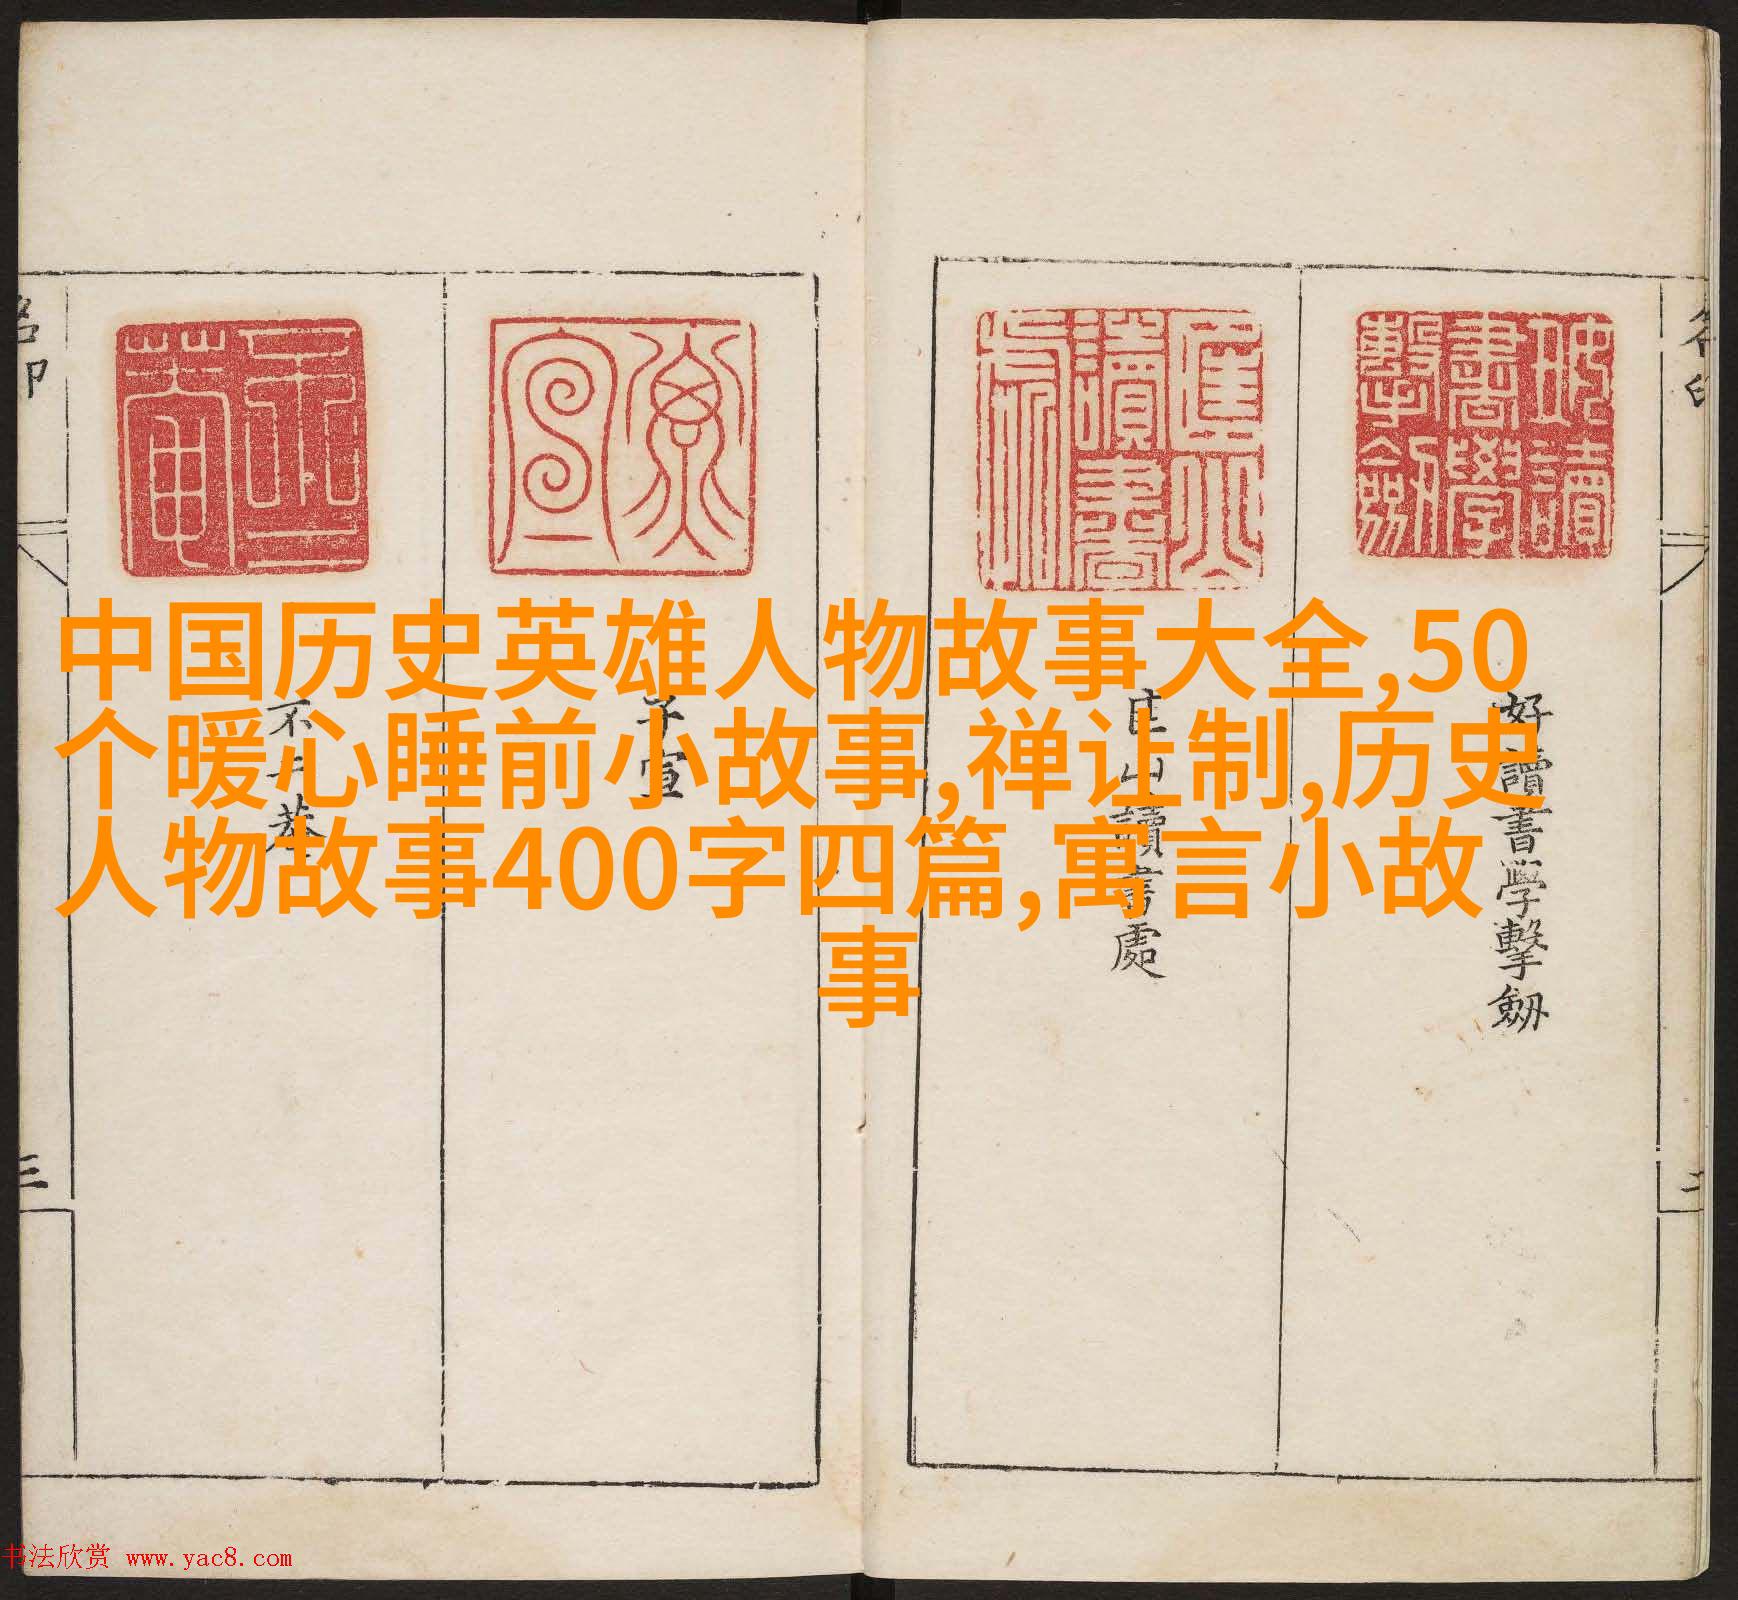 中国历史英雄人物故事大全,50
个暖心睡前小故事,禅让制,历史
人物故事400字四篇,寓言小故
事
好讀書學擊劔
匡山讀書處
子宣
不二菴
三
书法欣赏 www.yac8.com